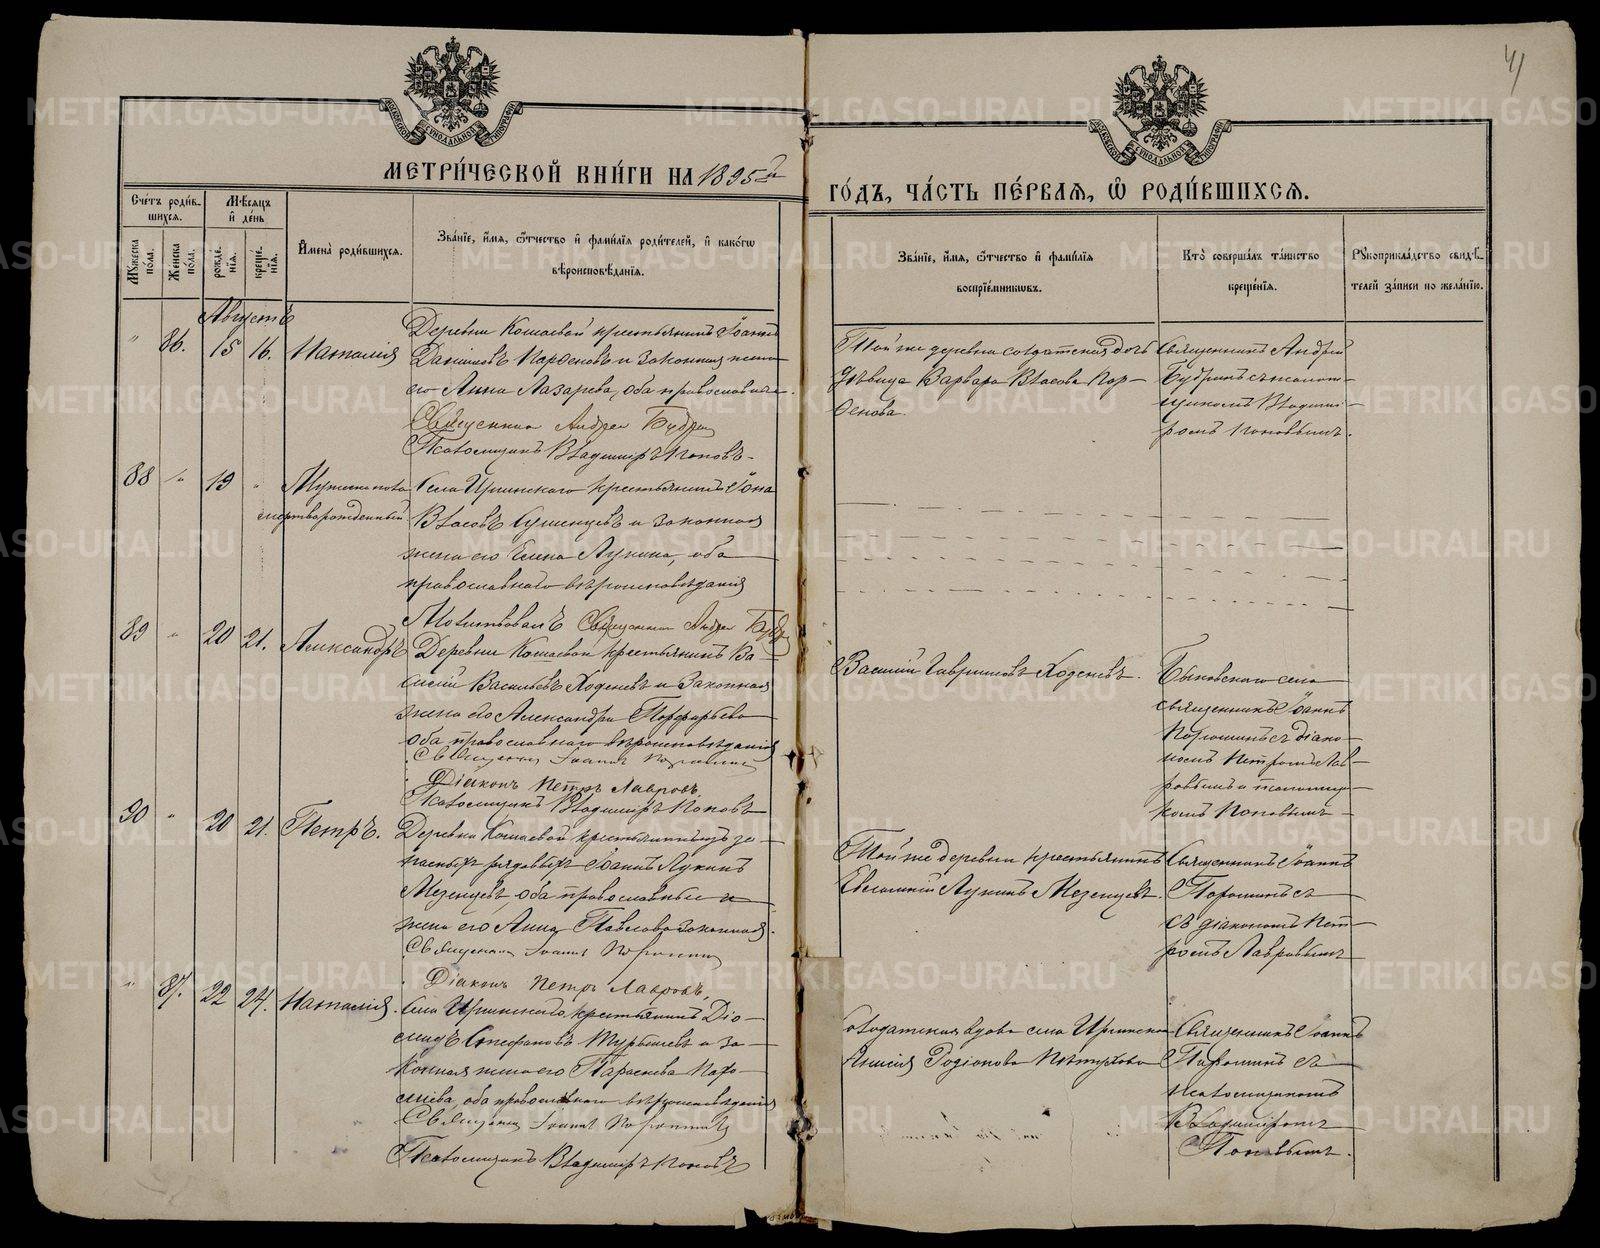 41
МЕТРИ́ЧЕСКОЙ КНИ́ГИ НА 1895й
ГО́ДЪ, ЧА́СТЬ ПЕ́РВАЯ, Ѿ РОДИ́ВШИХСЯ.
Сче́тъ роди́в-
шихся.
Мꙋжеска по́ла.
Женска по́ла.
Мѣ́сяцъ и де́нь
рожде́-
нія.
креще́-
нія.
Имена̀ роди́вшихся.
Зва́ніе, и́мя, ѻ҆́тчество и фами́лія роди́телей, и како́гѡ
вѣроисповѣ́данія.
Зва́ніе, и́мя, ѻ҆́тчество и фами́лія
воспріе́мникѡвъ.
Кто̀ соверша́лъ та́инство
креще́нія.
Рꙋкоприкла́дство свидѣ́-
телей за́писи по жела́нію.
Августъ
" 86. 15 16. Наталія
Деревни Кошаевой крестьянинъ Іоаннъ
Даниловъ и законная жена
его Анна Лазарева, оба православные.
Священникъ Андрей Будрин
Псаломщикъ Владиміръ Поповъ
Той же деревни солдатская дочь
дѣвица Варвара Власова Пар-
фенова.
Священникъ Андрей
Будринъ съ псалом-
щикомъ Владими-
ромъ Поповымъ.
88 " 19 "
мертворожденный
Села Иргинского крестьянинъ Іона
Власовъ и законная
жена его Елена Лукина, оба
православнаго вѣроисповѣданія
Молитвовалъ Священникъ Андрей Будр
89 " 20 21. Александръ
Деревни Кошаевой крестьянинъ Ва-
силій Васильевъ Ходеневъ и законная
жена его Александра Порфирьева
оба православнаго вѣроисповѣданія
Священникъ Іоаннъ Порошинъ
Діаконъ Петръ Лавровъ,
Псаломщикъ Владиміръ Поповъ
Василій Гавриловъ Ходеневъ.
Быковскаго села
священникъ Іоаннъ
Порошинъ съ діако-
номъ Петромъ Лав-
ровымъ и псаломщи-
комъ Поповымъ
90 " 20 21. Петръ.
Деревни Кошаевой крестьянинъ изъ за-
пасныхъ рядовыхъ Іоаннъ Лукинъ
Мезенцевъ оба православные и
жена его Анна Павлова законная.
Священникъ Іоаннъ Порошинъ
Діаконъ Петръ Лавровъ,
Той же деревни крестьянинъ
Лукинъ Мезенцевъ.
Священникъ Іоаннъ
Порошинъ съ
съ діакономъ Пет-
ромъ Лавровымъ
" 87. 22 24. Наталія.
Села Иргинскаго крестьянинъ Діо-
мидъ Стефановъ Турышевъ и за-
конная жена его Параскева
оба православнаго вѣроисповѣданія
Священникъ Іоаннъ Порошинъ
Псаломщикъ Владиміръ Поповъ
Солдатская вдова села Иргинскаго
Анисія Родіонова Пѣтухова
Священникъ Іоаннъ
Порошинъ съ
псаломщикомъ
Владиміромъ
Поповымъ.
METRIKI.GASO-URAL.RU